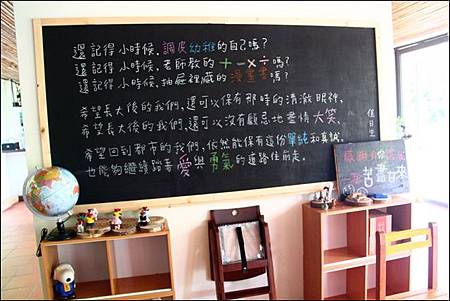 還記得小時候，調皮幼稚的自己嗎？
還記得小時候，老師教的＋－×÷嗎？
還記得小時候，抽屜裡藏的漫畫書嗎？
希望長大後的我們，還可以保有那時的清澈眼神，
希望長大後的我們，還可以沒有顧忌地盡情大笑，
希望回到都市的我們，依然能保有這份單純和真誠，
也能夠繼續踏著愛與勇氣的道路往前走。
值日生
苦盡甘來